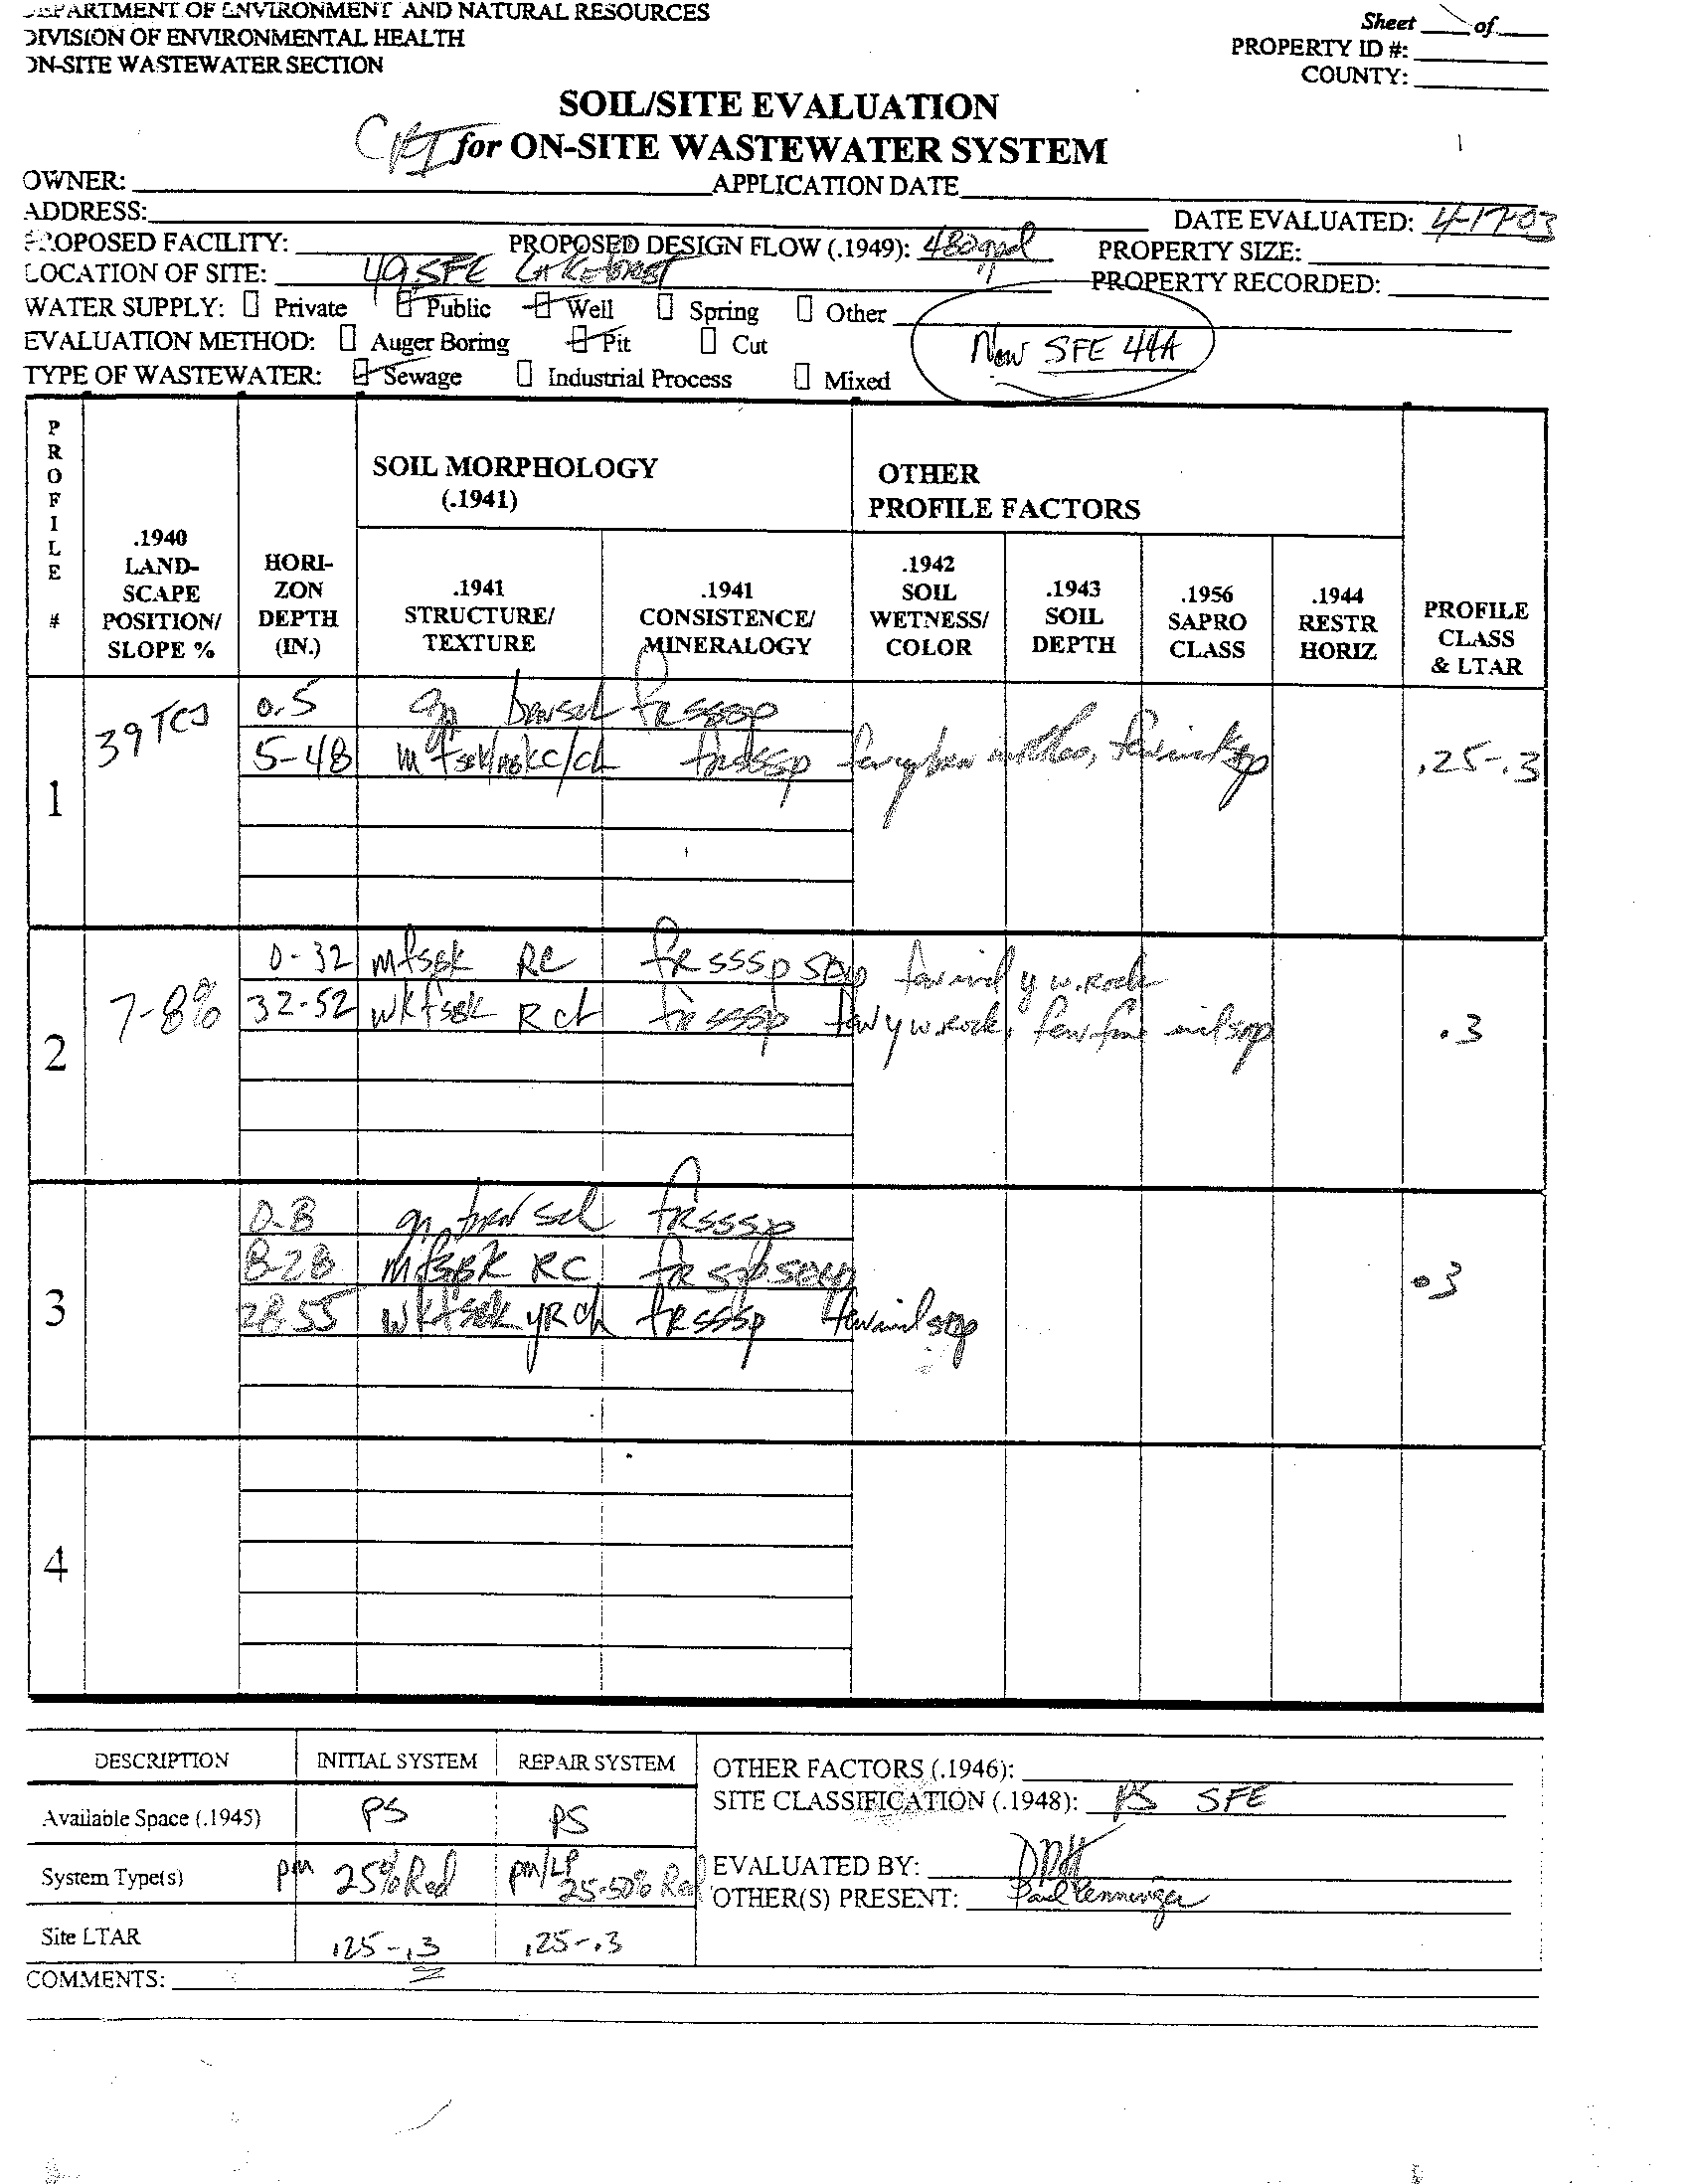 DEPARTMENT OF ENVIRONMENT AND NATURAL RESOURCES
DIVISION OF ENVIRONMENTAL HEALTH
ON-SITE WASTEWATER SECTION
Sheet of
PROPERTY ID #:
COUNTY:
SOIL/SITE EVALUATION
for ON-SITE WASTEWATER SYSTEM
OWNER: APPLICATION DATE
ADDRESS: DATE EVALUATED: 4-17-03
PROPOSED FACILITY: PROPOSED DESIGN FLOW (.1949): 480gpd PROPERTY SIZE:
LOCATION OF SITE: 49 SFE PROPERTY RECORDED:
WATER SUPPLY: Private Public Well Spring Other
EVALUATION METHOD: Auger Boring Pit Cut
Now SFE 44A
TYPE OF WASTEWATER: Sewage Industrial Process Mixed
PROFILE #
.1940 LAND-SCAPE POSITION/ SLOPE %
HORI-ZON DEPTH (IN.)
SOIL MORPHOLOGY (.1941)
.1941 STRUCTURE/ TEXTURE
.1941 CONSISTENCE/ MINERALOGY
OTHER PROFILE FACTORS
.1942 SOIL WETNESS/ COLOR
.1943 SOIL DEPTH
.1956 SAPRO CLASS
.1944 RESTR HORIZ
PROFILE CLASS & LTAR
1
0-5
5-48
.25-.3
2
7-8%
0-32 mfsbk RC frsssp
32-52 wkfsbk Rcl frsssp
.3
3
0-8 scl frsssp
8-28 mfsbk RC
28-55 wkfsbk yRcl frsssp
.3
4
DESCRIPTION INITIAL SYSTEM REPAIR SYSTEM
Available Space (.1945) PS PS
System Type(s) pm 25% Red pm/LP 25-50% Red
Site LTAR .25-.3 .25-.3
OTHER FACTORS (.1946):
SITE CLASSIFICATION (.1948): PS SFE
EVALUATED BY:
OTHER(S) PRESENT: Paul
COMMENTS: